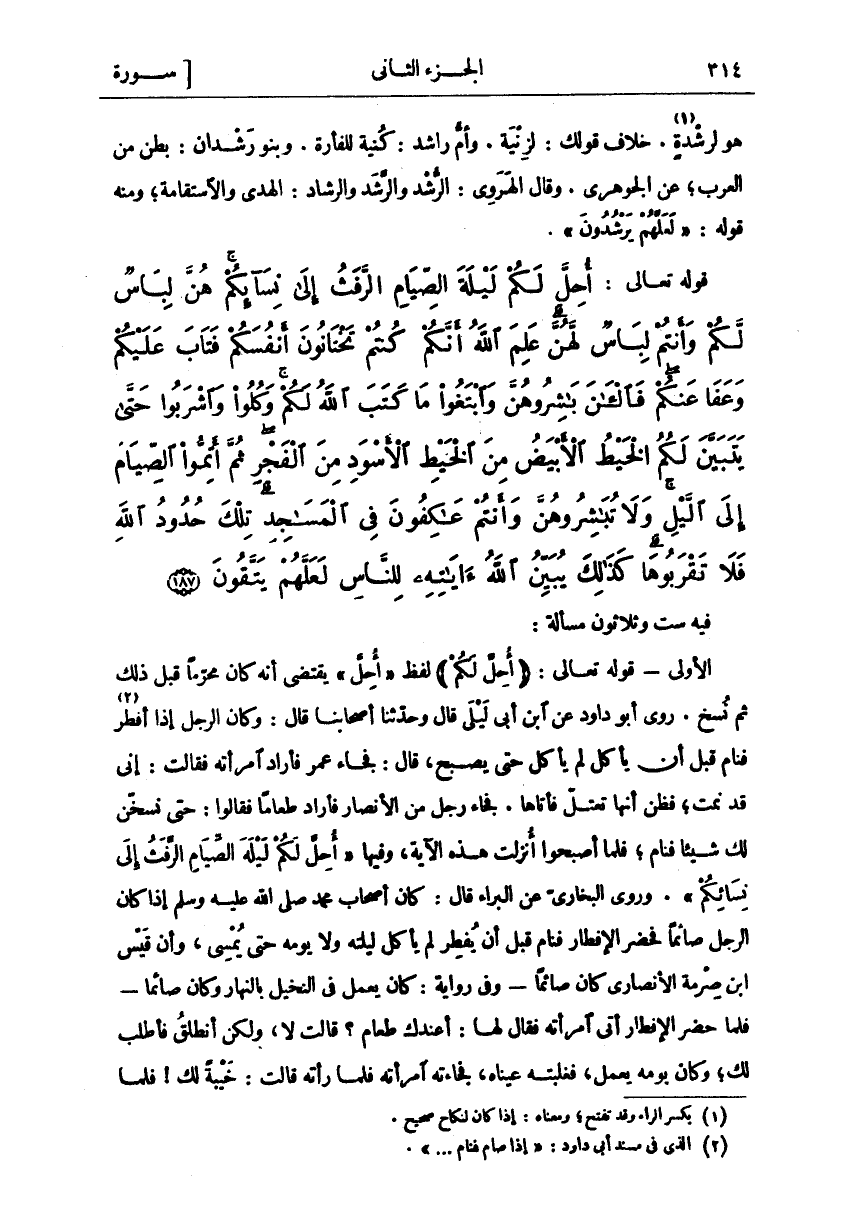 ٣١٤ الجـزء الثـانى [ ســورة
هو لرِشْدةٍ (١) . خلاف قولك : لِزِنْيَة . وأمّ راشد : كُنية للفأرة . وبنو رَشْـدان : بطن من
العرب؛ عن الجوهرى . وقال الهَرَوِى : الرُّشْد والرَّشَد والرشاد : الهدى والآستقامة؛ ومنه
قوله : « لَعَلَّهُمْ يَرْشُدُونَ » .
قوله تعـالى : أُحِلَّ لَكُمْ لَيْلَةَ ٱلصِّيَامِ ٱلرَّفَثُ إِلَىٰ نِسَآئِكُمْ ۚ هُنَّ لِبَاسٌ
لَّكُمْ وَأَنتُمْ لِبَاسٌ لَّهُنَّ ۗ عَلِمَ ٱللَّهُ أَنَّكُمْ كُنتُمْ تَخْتَانُونَ أَنفُسَكُمْ فَتَابَ عَلَيْكُمْ
وَعَفَا عَنكُمْ ۖ فَٱلْـَٰٔنَ بَـٰشِرُوهُنَّ وَٱبْتَغُوا مَا كَتَبَ ٱللَّهُ لَكُمْ ۚ وَكُلُوا۟ وَٱشْرَبُوا حَتَّىٰ
يَتَبَيَّنَ لَكُمُ ٱلْخَيْطُ ٱلْأَبْيَضُ مِنَ ٱلْخَيْطِ ٱلْأَسْوَدِ مِنَ ٱلْفَجْرِ ۖ ثُمَّ أَتِمُّوا۟ ٱلصِّيَامَ
إِلَى ٱلَّيْلِ ۚ وَلَا تُبَـٰشِرُوهُنَّ وَأَنتُمْ عَـٰكِفُونَ فِى ٱلْمَسَـٰجِدِ ۗ تِلْكَ حُدُودُ ٱللَّهِ
فَلَا تَقْرَبُوهَا ۗ كَذَٰلِكَ يُبَيِّنُ ٱللَّهُ ءَايَـٰتِهِۦ لِلنَّاسِ لَعَلَّهُمْ يَتَّقُونَ ١٨٧
فيه ست وثلاثون مسألة :
الأولى — قوله تعـالى : ﴿ أُحِلَّ لَكُمْ ﴾ لفظ « أُحِلّ » يقتضى أنه كان محرّماً قبل ذلك
ثم نُسخ . روى أبو داود عن آبن أبى لَيْلَى قال وحدّثنا أصحابنـا قال : وكان الرجل إذا أفطر (٢)
فنام قبل أن يأكل لم يأكل حتى يصبح، قال : بجـاء عمر فأراد آمرأته فقالت : إنى
قد نمت؛ فظن أنها تعتـلّ فأتاها . بجاء رجل من الأنصار فأراد طعامًا فقالوا : حتى نسخّن
لك شـيئا فنام ؛ فلما أصبحوا أُنزلت هـذه الآية، وفيها « أُحِلَّ لَكُمْ لَيْلَةَ الصِّيَامِ الرَّفَثُ إِلَى
نِسَائِكُمْ » . وروى البخارىّ عن البراء قال : كان أصحاب محمد صلى الله عليـه وسلم إذا كان
الرجل صائمًا فحضر الإفطار فنام قبل أن يُفطِر لم يأكل ليلته ولا يومه حتى يُمْسِى ، وأن قَيْس
ابن صِرْمة الأنصارى كان صائمًا — وفى رواية : كان يعمل فى النخيل بالنهار وكان صائما —
فلما حضر الإفطار أتى آمرأته فقال لهـا : أعندك طعام ؟ قالت لا، ولكن أنطلقُ فأطلب
لك؛ وكان يومه يعمل، فغلبتـه عيناه، بجاءته آمرأته فلمـا رأته قالت : خَيْبةً لك ! فلمـا
(١) بكسر الراء وقد تفتح؛ ومعناه : إذا كان لنكاح صحيح .
(٢) الذى فى مسند أبى داود : « إذا صام فنام ... » .